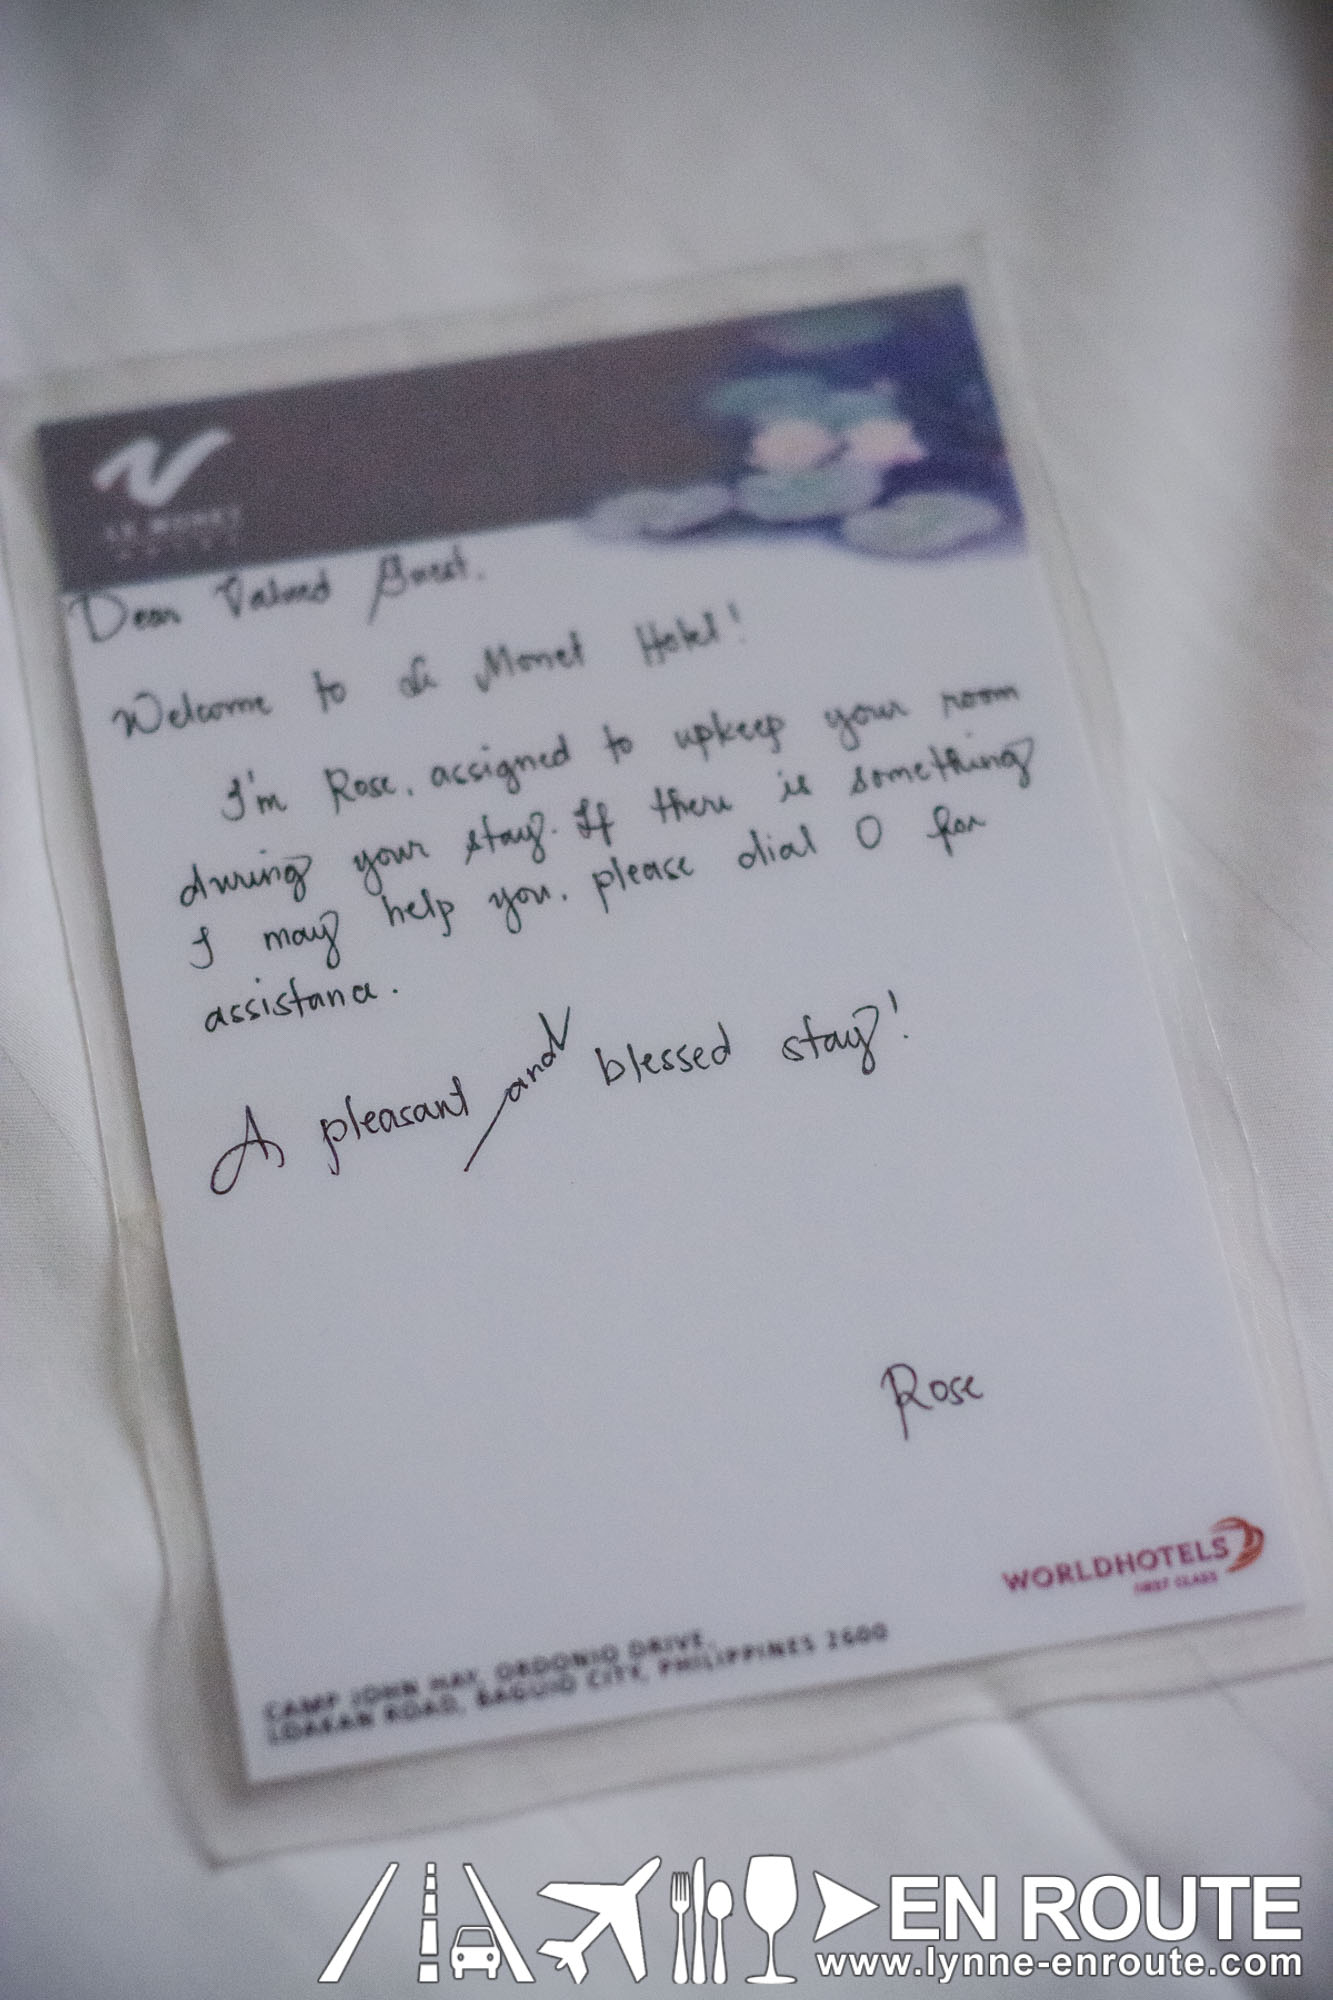 LE MONET
HOTEL
Dear Valued Guest,
Welcome to Le Monet Hotel!
I'm Rose, assigned to upkeep your room
during your stay. If there is something
I may help you, please dial 0 for
assistance.
A pleasant and blessed stay!
Rose
WORLDHOTELS
FIRST CLASS
CAMP JOHN HAY, ORDONIO DRIVE,
LOAKAN ROAD, BAGUIO CITY, PHILIPPINES 2600
EN ROUTE
www.lynne-enroute.com